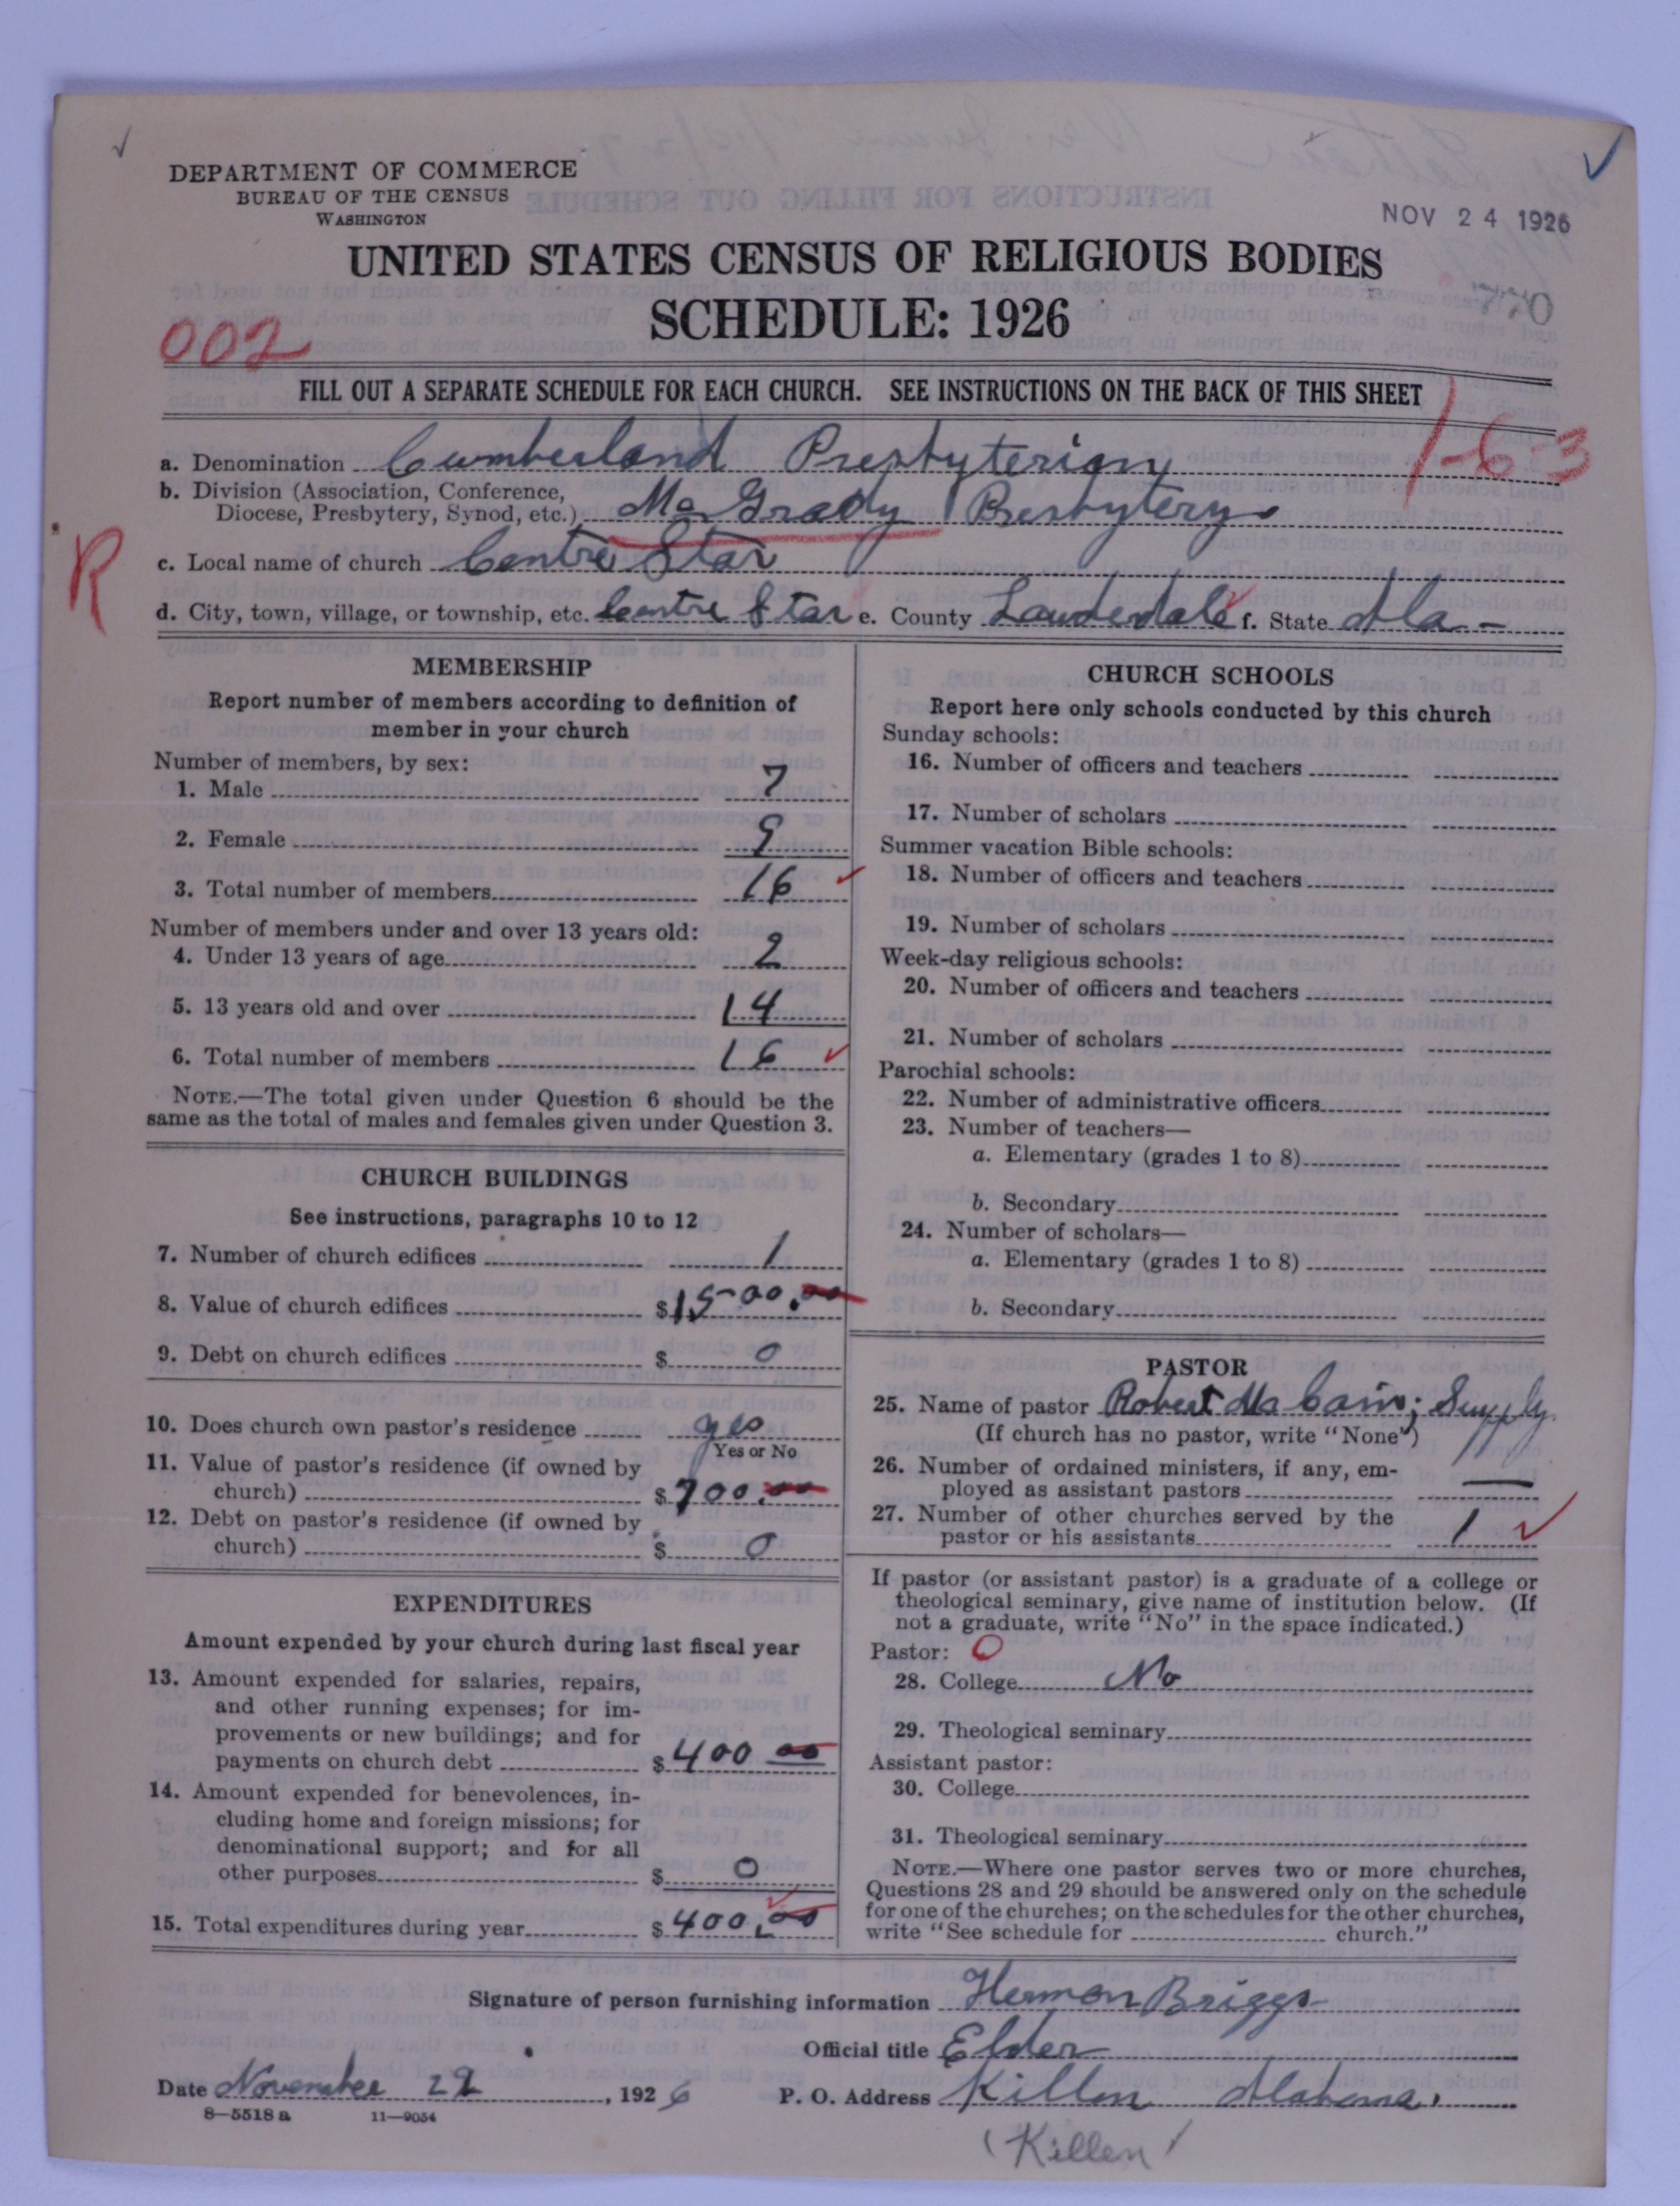 DEPARTMENT OF COMMERCE
BUREAU OF THE CENSUS
WASHINGTON
NOV 24 1926
UNITED STATES CENSUS OF RELIGIOUS BODIES
SCHEDULE: 1926
002
FILL OUT A SEPARATE SCHEDULE FOR EACH CHURCH. SEE INSTRUCTIONS ON THE BACK OF THIS SHEET
1-63
a. Denomination Cumberland Presbyterian
b. Division (Association, Conference,
Diocese, Presbytery, Synod, etc.) McGrady Presbytery
R
c. Local name of church Centre Star
d. City, town, village, or township, etc. Centre Star e. County Lauderdale f. State Ala-
MEMBERSHIP
Report number of members according to definition of
member in your church
Number of members, by sex:
1. Male 7
2. Female 9
3. Total number of members 16
Number of members under and over 13 years old:
4. Under 13 years of age 2
5. 13 years old and over 14
6. Total number of members 16
NOTE.—The total given under Question 6 should be the
same as the total of males and females given under Question 3.
CHURCH BUILDINGS
See instructions, paragraphs 10 to 12
7. Number of church edifices 1
8. Value of church edifices $1500.00
9. Debt on church edifices $ 0
10. Does church own pastor's residence yes
Yes or No
11. Value of pastor's residence (if owned by
church) $700.00
12. Debt on pastor's residence (if owned by
church) $ 0
EXPENDITURES
Amount expended by your church during last fiscal year
13. Amount expended for salaries, repairs,
and other running expenses; for im-
provements or new buildings; and for
payments on church debt $400 00
14. Amount expended for benevolences, in-
cluding home and foreign missions; for
denominational support; and for all
other purposes $ 0
15. Total expenditures during year $400.00
CHURCH SCHOOLS
Report here only schools conducted by this church
Sunday schools:
16. Number of officers and teachers
17. Number of scholars
Summer vacation Bible schools:
18. Number of officers and teachers
19. Number of scholars
Week-day religious schools:
20. Number of officers and teachers
21. Number of scholars
Parochial schools:
22. Number of administrative officers
23. Number of teachers—
a. Elementary (grades 1 to 8)
b. Secondary
24. Number of scholars—
a. Elementary (grades 1 to 8)
b. Secondary
PASTOR
25. Name of pastor Robert McCain; Supply
(If church has no pastor, write "None")
26. Number of ordained ministers, if any, em-
ployed as assistant pastors —
27. Number of other churches served by the
pastor or his assistants 1
If pastor (or assistant pastor) is a graduate of a college or
theological seminary, give name of institution below. (If
not a graduate, write "No" in the space indicated.)
Pastor: O
28. College No
29. Theological seminary
Assistant pastor:
30. College
31. Theological seminary
NOTE.—Where one pastor serves two or more churches,
Questions 28 and 29 should be answered only on the schedule
for one of the churches; on the schedules for the other churches,
write "See schedule for church."
Signature of person furnishing information Hermon Briggs
Official title Elder
Date November 22, 1926 P. O. Address Killen Alabama.
8—5518 a 11—9054
(Killen)